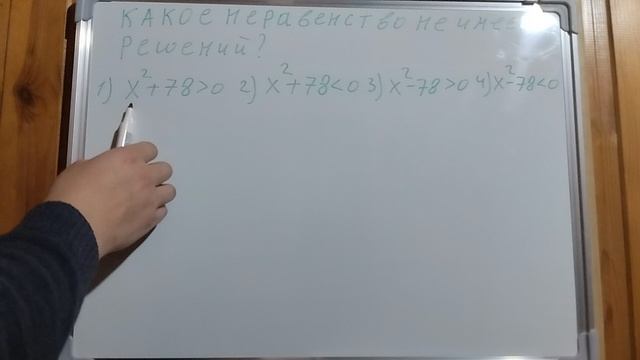 какое неравенство не имеет
решений?
1) x²+78>0 2) x²+78<0 3) x²-78>0 4) x²-78<0